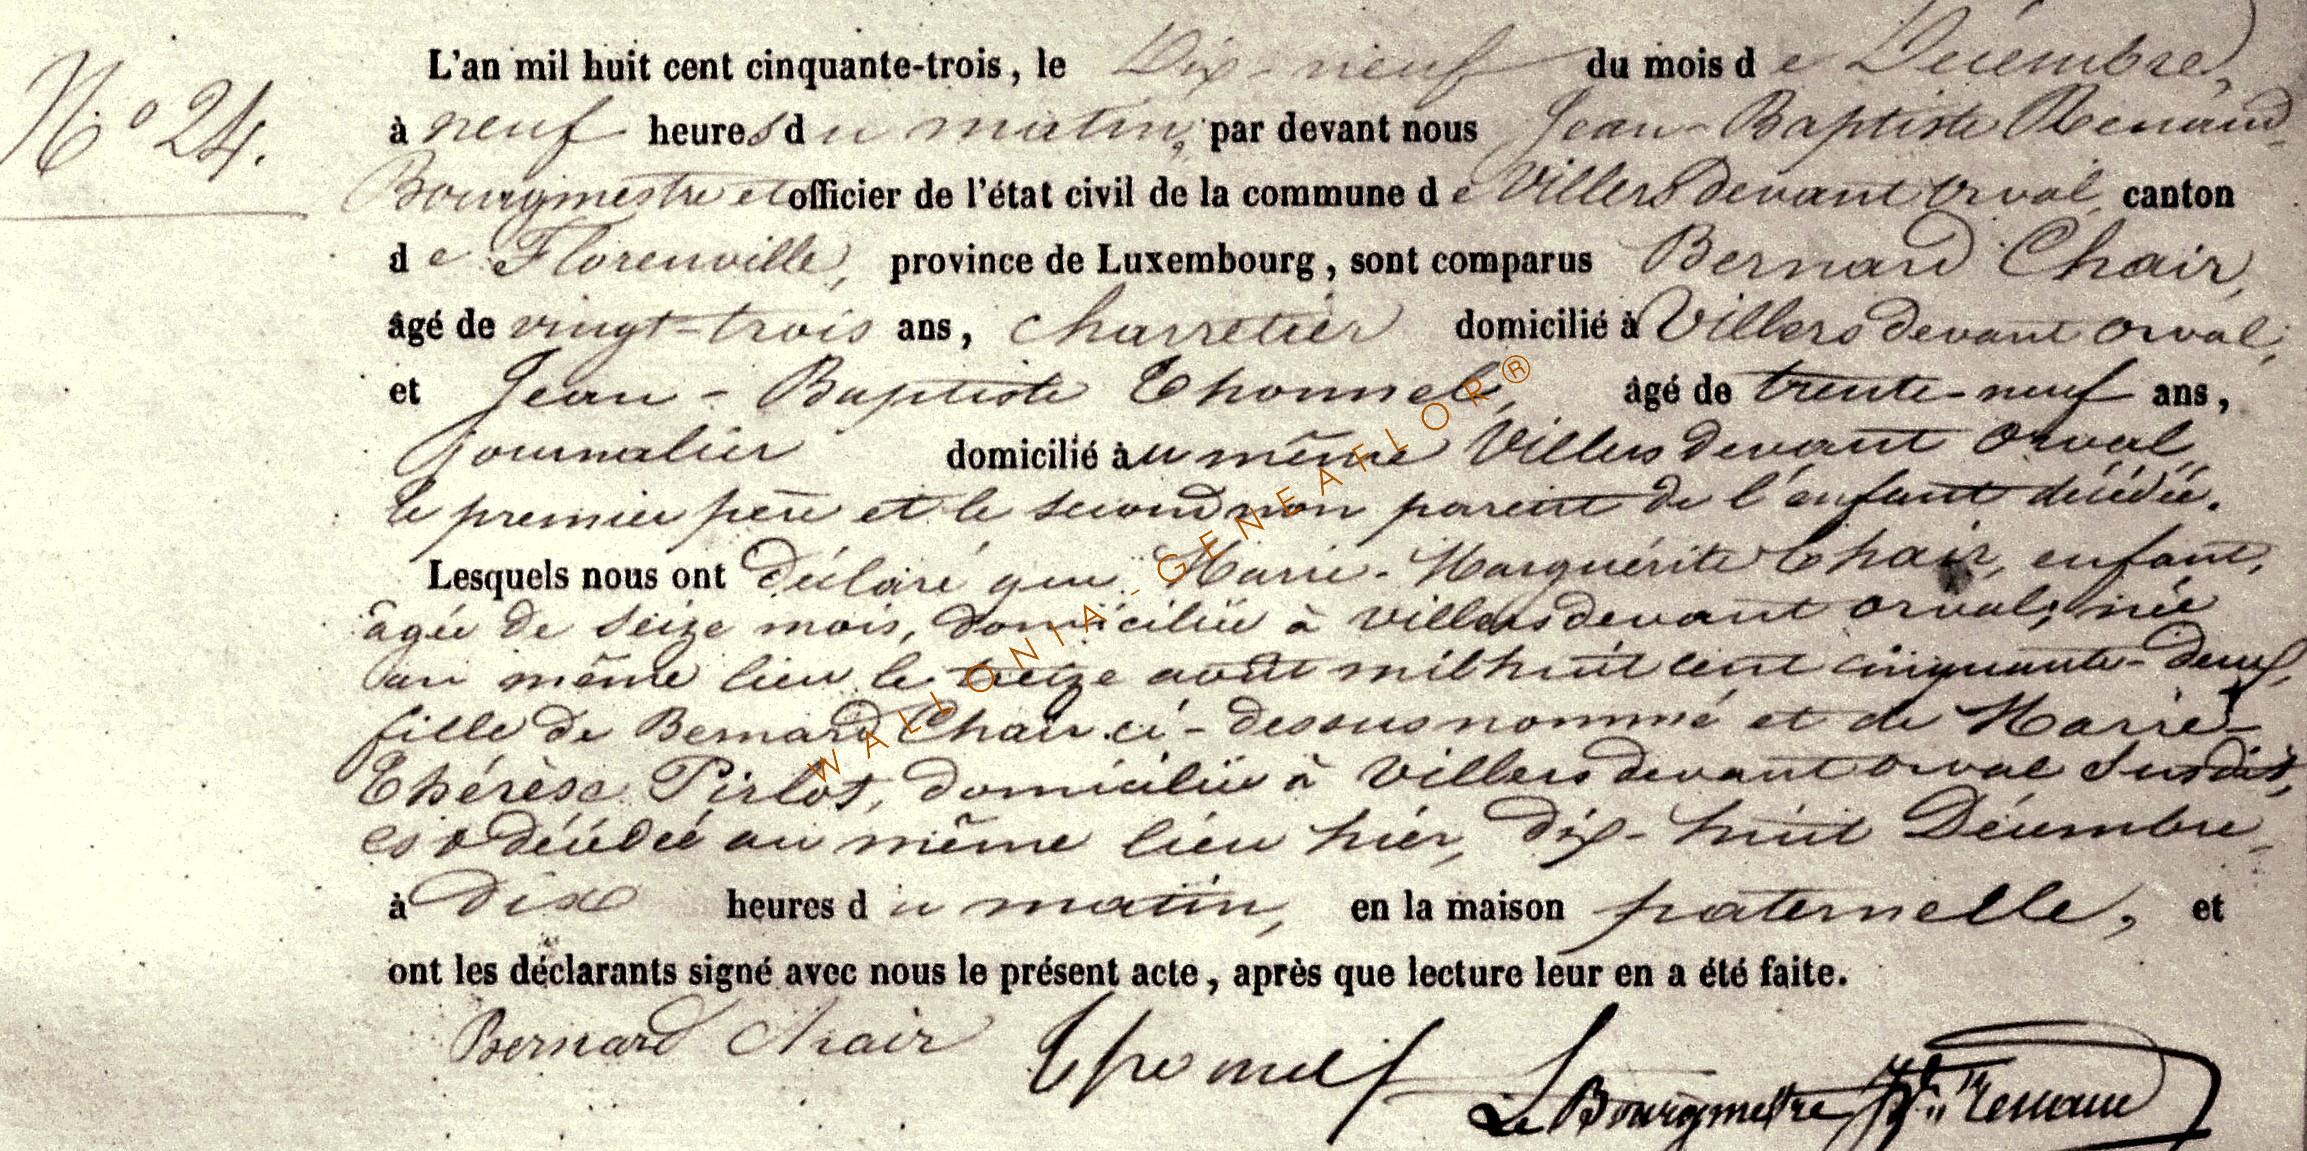 N° 24.
L'an mil huit cent cinquante-trois, le Dix-neuf du mois de Décembre,
à neuf heures du matin, par devant nous Jean-Baptiste Renaud
Bourgmestre et officier de l'état civil de la commune de Villers devant orval, canton
de Florenville, province de Luxembourg, sont comparus Bernard Chair,
âgé de vingt-trois ans, charretier domicilié à Villers devant orval,
et Jean-Baptiste Thonnel, âgé de trente-neuf ans,
journalier domicilié au même Villers devant Orval,
le premier père et le second non parent de l'enfant décédée.
Lesquels nous ont déclaré que Marie-Marguérite Chair, enfant,
âgée de seize mois, domiciliée à villers devant orval, née
au même lieu le treize août mil huit cent cinquante-deux,
fille de Bernard Chair ci-dessus nommé et de Marie-
Thérèse Pirlot, domiciliée à Villers devant orval susdit,
est décédée au même lieu hier, dix-huit Décembre,
à dix heures du matin, en la maison paternelle, et
ont les déclarants signé avec nous le présent acte, après que lecture leur en a été faite.
Bernard Chair Thonnel Le Bourgmestre
WALLONIA-GENEAFLOR®